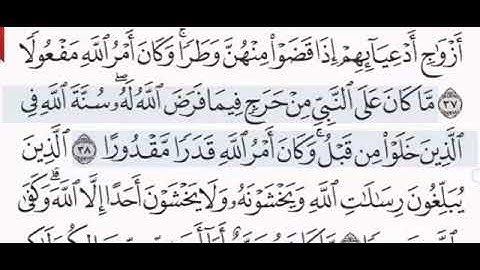 أَزْوَٰجِ أَدْعِيَآئِهِمْ إِذَا قَضَوْا۟ مِنْهُنَّ وَطَرًا ۚ وَكَانَ أَمْرُ ٱللَّهِ مَفْعُولًا
٣٧ مَّا كَانَ عَلَى ٱلنَّبِىِّ مِنْ حَرَجٍ فِيمَا فَرَضَ ٱللَّهُ لَهُۥ ۖ سُنَّةَ ٱللَّهِ فِى
ٱلَّذِينَ خَلَوْا۟ مِن قَبْلُ ۚ وَكَانَ أَمْرُ ٱللَّهِ قَدَرًا مَّقْدُورًا ٣٨ ٱلَّذِينَ
يُبَلِّغُونَ رِسَٰلَٰتِ ٱللَّهِ وَيَخْشَوْنَهُۥ وَلَا يَخْشَوْنَ أَحَدًا إِلَّا ٱللَّهَ ۗ وَكَفَىٰ